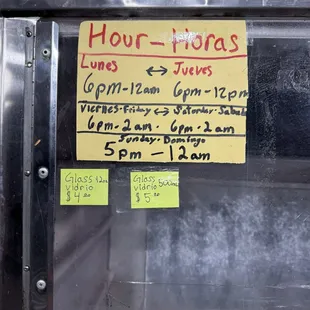 Hour - Horas
Lunes ↔ Jueves
6pm-12am 6pm-12pm
Viernes-Friday ↔ Saturday-Sabado
6pm-2am. 6pm-2am
Sunday-Domingo
5pm - 12am
Glass 12oz
vidrio
$4
Glass 500ml
vidrio
$5